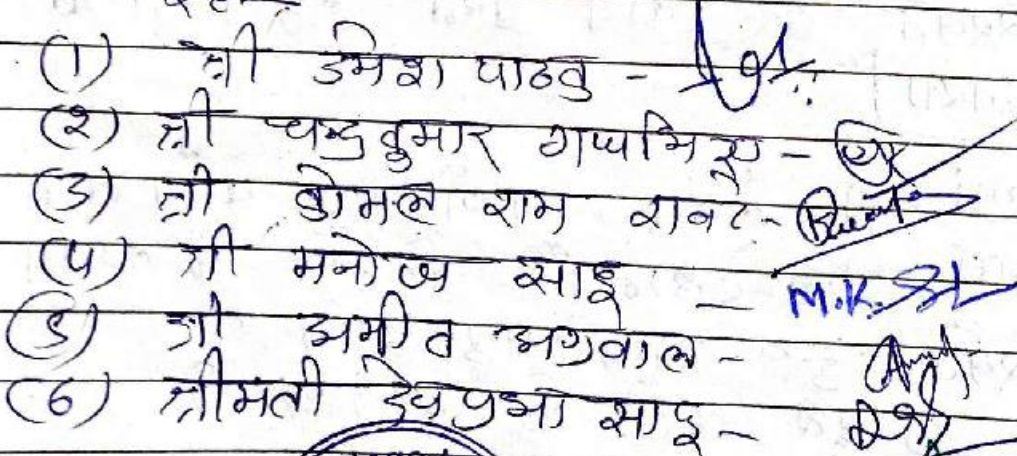 (1) श्री उमेश पाठक -
(2) श्री चन्द्रकुमार गजभिए -
(3) श्री कोमल राम रावटे -
(4) श्री मनोज साहू - M.K.
(5) श्री अमीत अग्रवाल -
(6) श्रीमती देवप्रभा साहू -